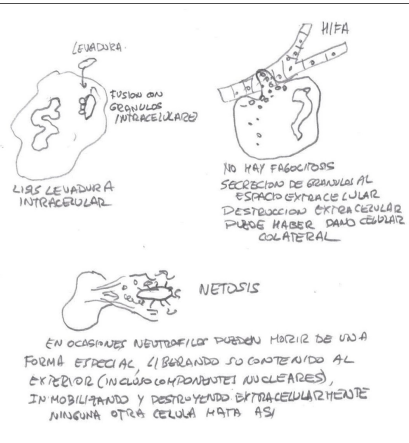 LEVADURA
FUSION CON
GRANULOS
INTRACELULARES
LISIS LEVADURA
INTRACELULAR
HIFA
NO HAY FAGOCITOSIS
SECRECION DE GRANULOS AL
ESPACIO EXTRACELULAR
DESTRUCCION EXTRACELULAR
PUEDE HABER DAÑO CELULAR
COLATERAL
NETOSIS
EN OCASIONES NEUTROFILOS PUEDEN MORIR DE UNA
FORMA ESPECIAL, LIBERANDO SU CONTENIDO AL
EXTERIOR (INCLUSO COMPONENTES NUCLEARES),
INMOBILIZANDO Y DESTRUYENDO EXTRACELULARMENTE
NINGUNA OTRA CELULA MATA ASI